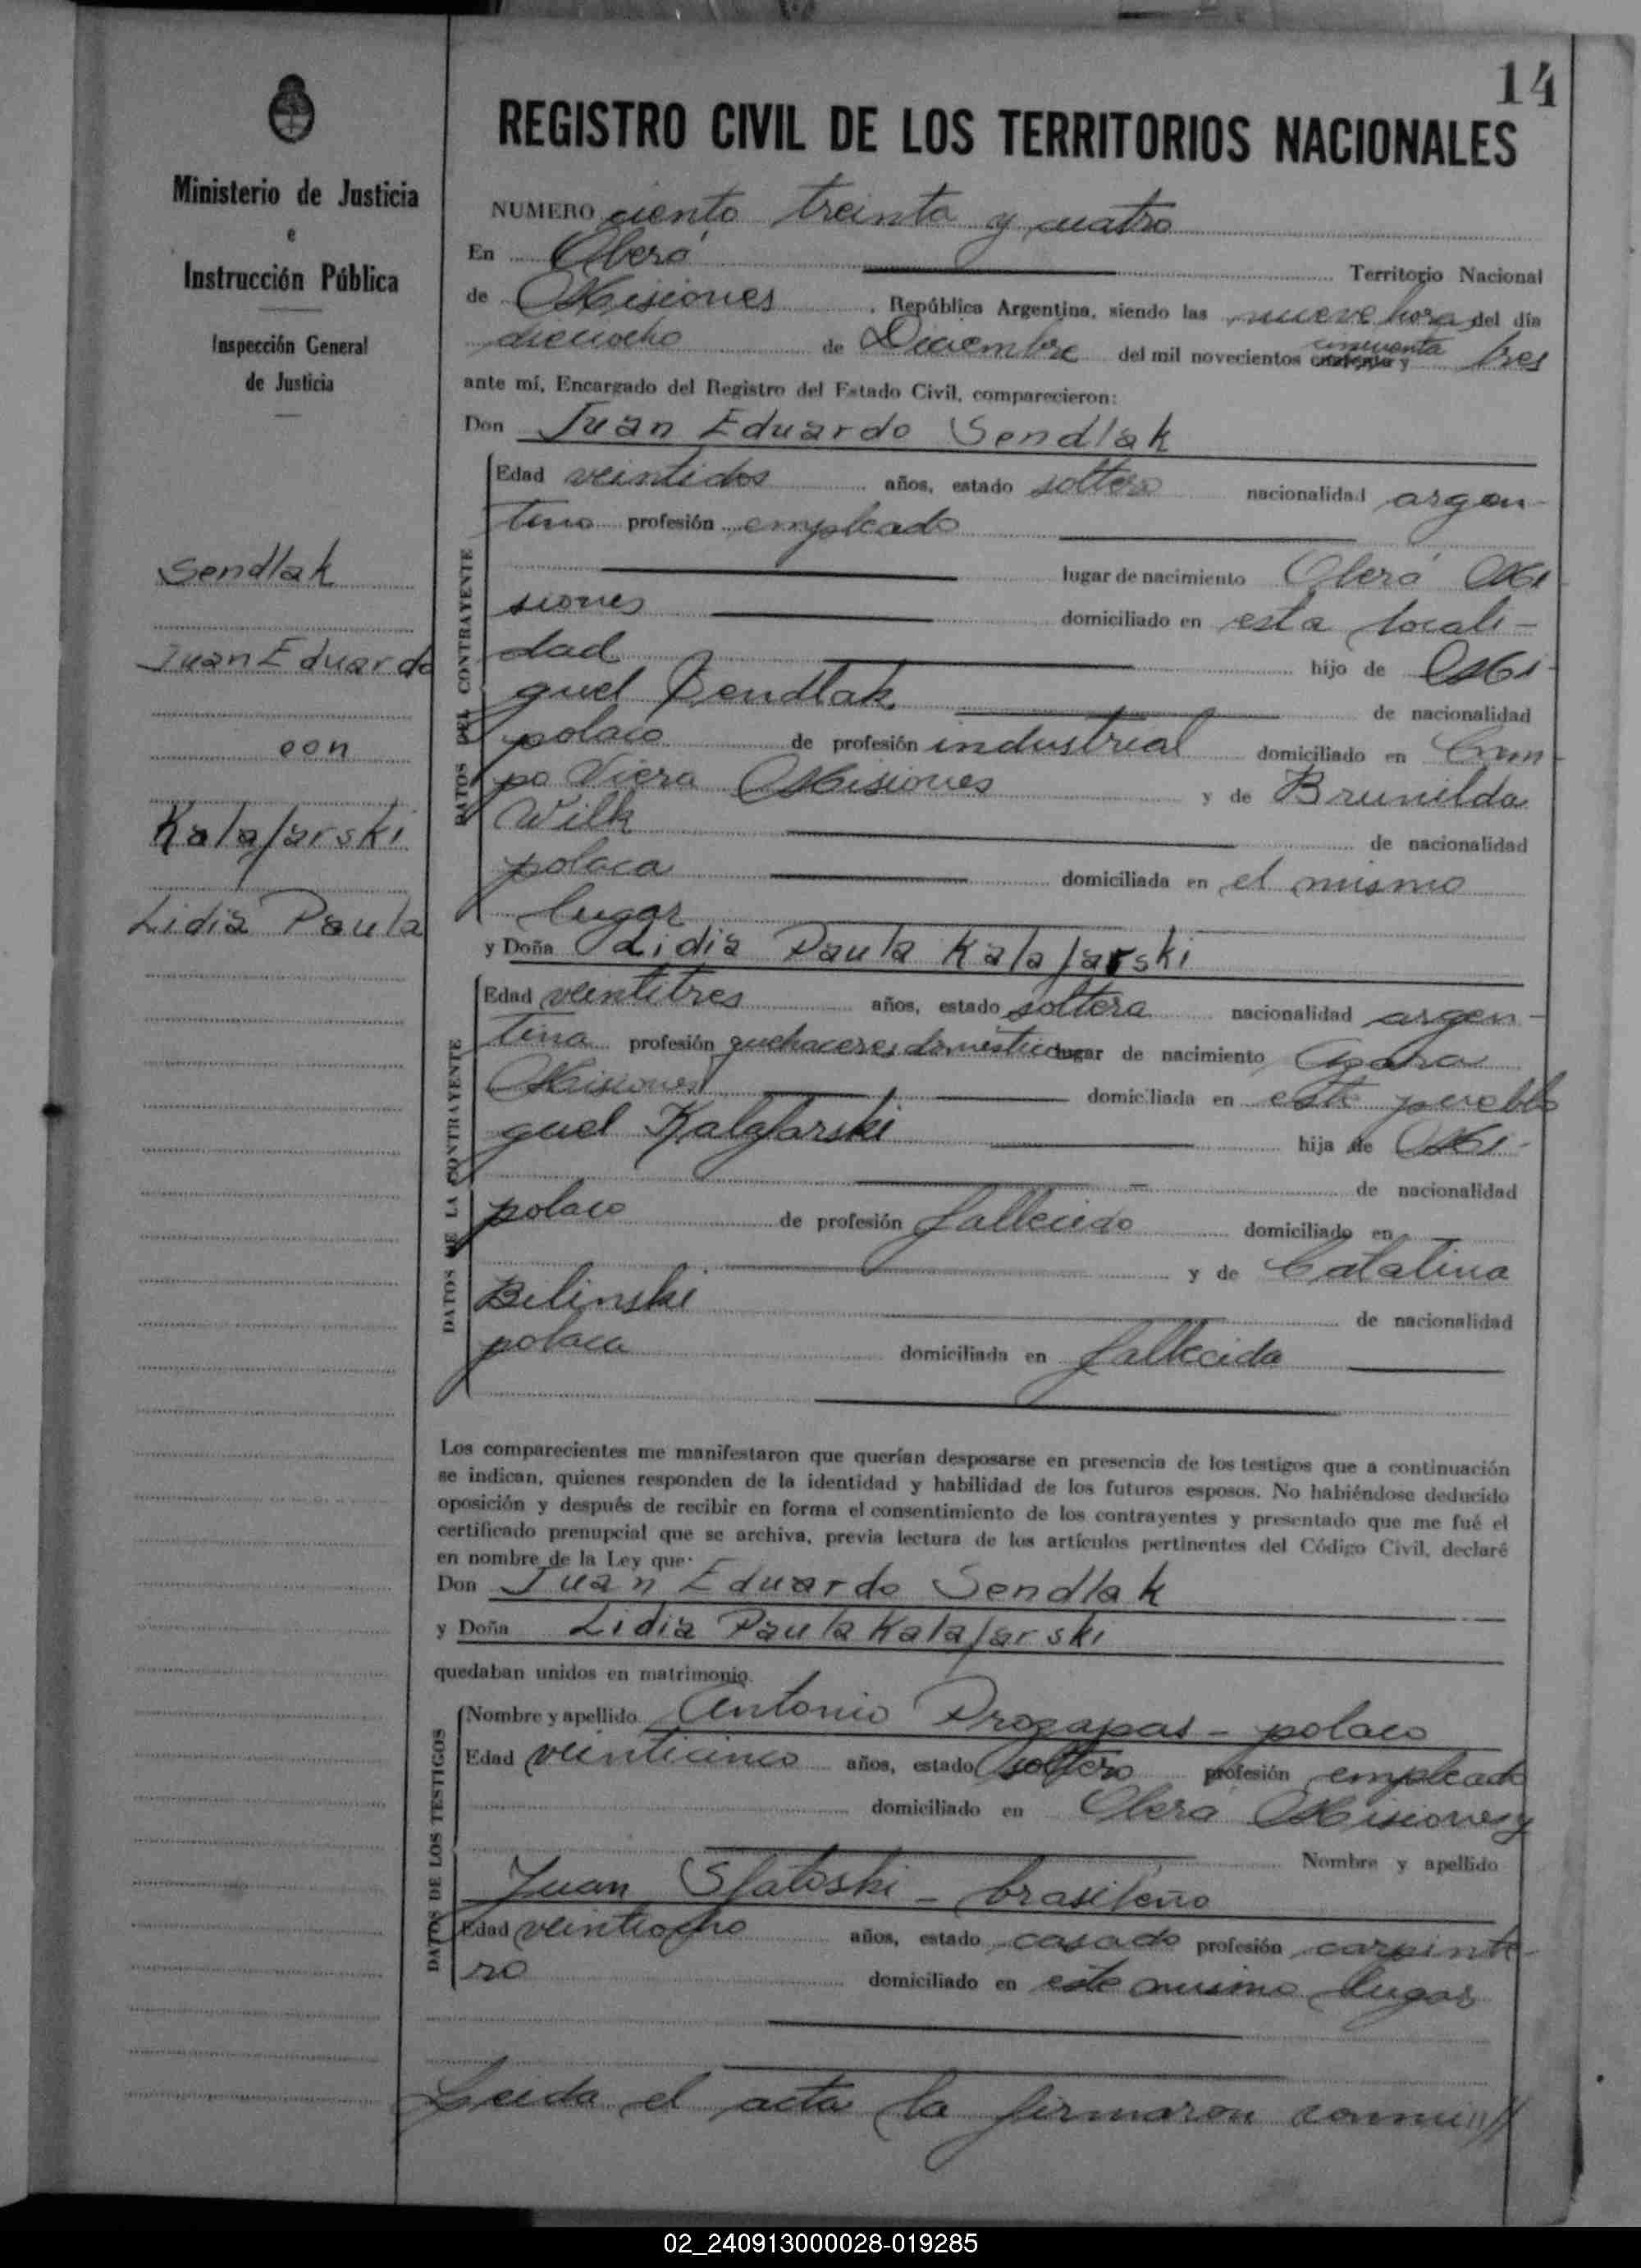 14
REGISTRO CIVIL DE LOS TERRITORIOS NACIONALES
Ministerio de Justicia
e
Instrucción Pública
Inspección General
de Justicia
Sendlak
Juan Eduardo
con
Kalafarski
Lidia Paula
NUMERO ciento treinta y cuatro
En Oberá Territorio Nacional
de Misiones, República Argentina, siendo las nueve horas del día
dieciocho de Diciembre del mil novecientos cincuenta y tres
ante mí, Encargado del Registro del Estado Civil, comparecieron:
Don Juan Eduardo Sendlak
DATOS DEL CONTRAYENTE
Edad veintidos años, estado soltero nacionalidad argen-
tino profesión empleado
lugar de nacimiento Oberá Mi
siones domiciliado en esta locali-
dad hijo de Mi-
guel Sendlak de nacionalidad
polaco de profesión industrial domiciliado en Cam-
po Viera Misiones y de Brunilda
Wilk de nacionalidad
polaca domiciliada en el mismo
lugar
y Doña Lidia Paula Kalafarski
DATOS DE LA CONTRAYENTE
Edad veintitres años, estado soltera nacionalidad argen-
tina profesión quehaceres domesticos lugar de nacimiento Azara
Misiones domiciliada en este pueblo
guel Kalafarski hija de Mi-
de nacionalidad
polaco de profesión fallecido domiciliado en
y de Catalina
Bilinski de nacionalidad
polaca domiciliada en fallecida
Los comparecientes me manifestaron que querían desposarse en presencia de los testigos que a continuación
se indican, quienes responden de la identidad y habilidad de los futuros esposos. No habiéndose deducido
oposición y después de recibir en forma el consentimiento de los contrayentes y presentado que me fué el
certificado prenupcial que se archiva, previa lectura de los artículos pertinentes del Código Civil, declaré
en nombre de la Ley que:
Don Juan Eduardo Sendlak
y Doña Lidia Paula Kalafarski
quedaban unidos en matrimonio.
DATOS DE LOS TESTIGOS
Nombre y apellido Antonio Prozapas - polaco
Edad veinticinco años, estado soltero profesión empleado
domiciliado en Oberá Misiones y
Nombre y apellido
Juan Slatoski - brasileño
Edad veintiocho años, estado casado profesión carpinte-
ro domiciliado en este mismo lugar
Leida el acta la firmaron conmi//
02_240913000028-019285